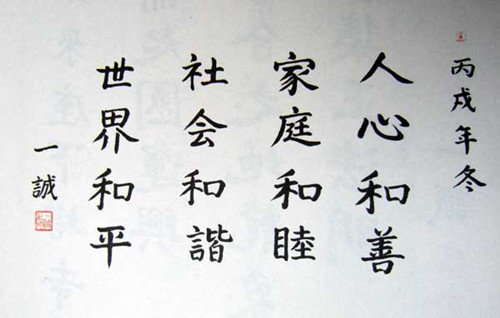 丙戌年冬
人心和善
家庭和睦
社会和諧
世界和平
一誠